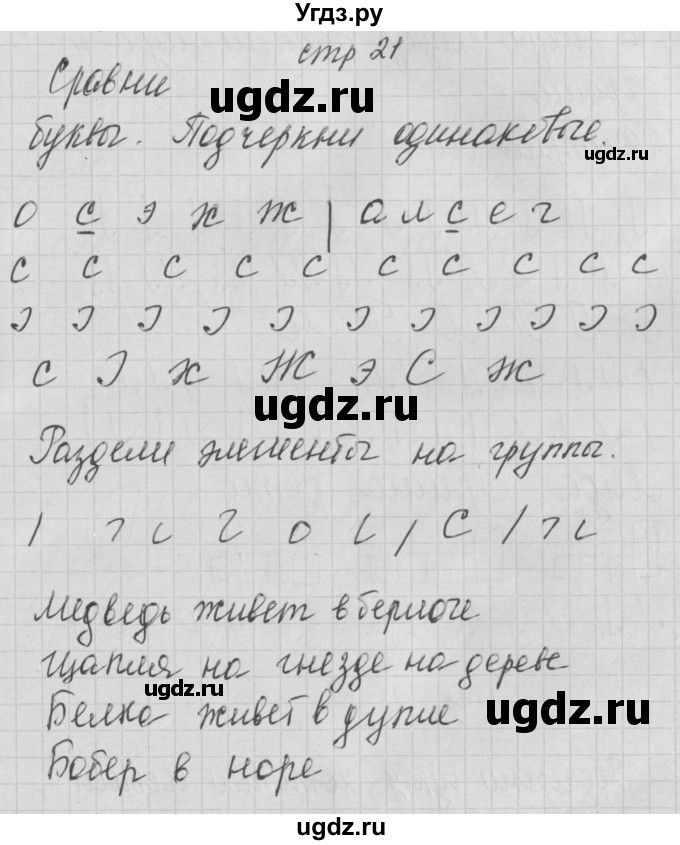 Угдз.ру
стр 21
Сравни
ugdz.ru
буквы. Подчеркни одинаковые.
ugdz.ru
о с э х ж | а л с е г
с с с с с с с с с с
э х Ж э С ж
ugdz.ru
Раздели элементы на группы.
Медведь живет в берлоге
Цапля на гнезде на дереве
ugdz.ru
Белка живет в дупле
ugdz.ru
Бобер в норе
ugdz.ru